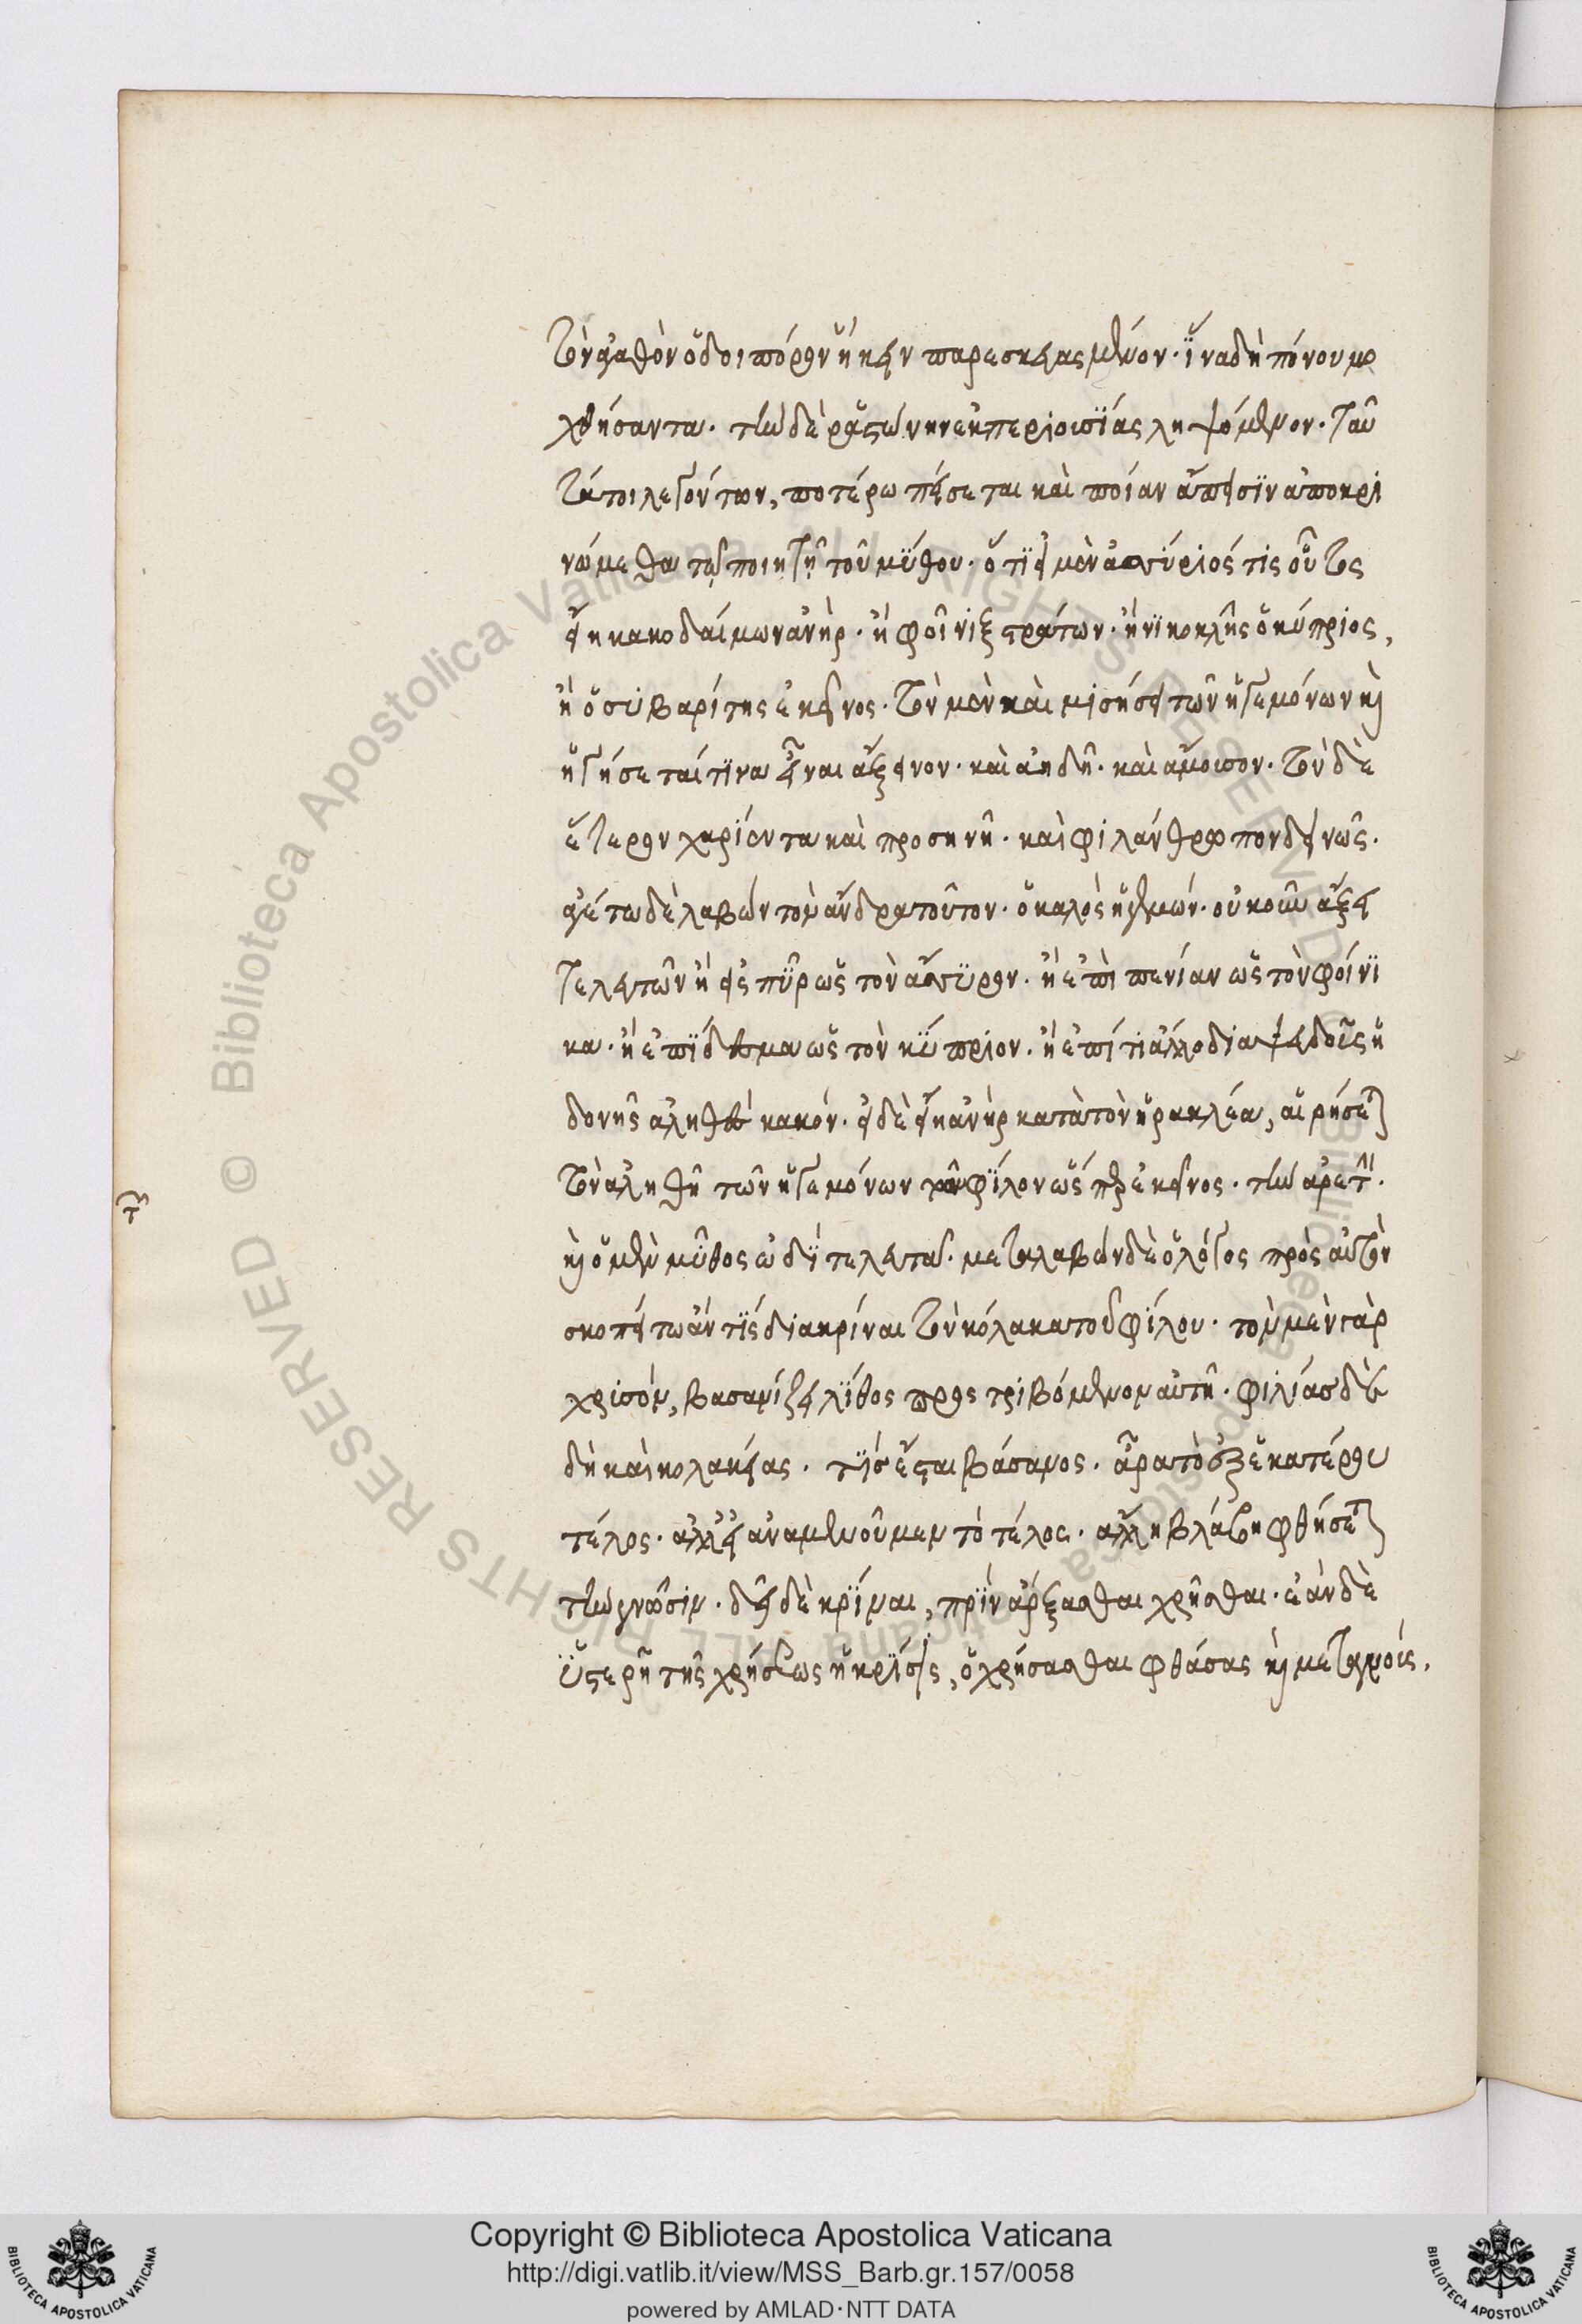 τὸν ἀγαθὸν ὁδοιπόρον ἥκειν παρεσκευασμένον· ἵνα δὴ πόνου μο
χθήσαντα· τὴν δὲ ῥαστώνην ἐκ περιουσίας ληψόμενον· ταῦ
τά τοι λεγόντων, ποτέρω πείσεται καὶ ποίαν ἄπεισιν ἀποκρι
νώμεθα τῷ ποιητῇ τοῦ μύθου· ὅτι εἰ μὲν ἀσσύριός τις οὗτος
εἴη κακοδαίμων ἀνὴρ· ἢ φοῖνιξ στράτων· ἢ νικοκλῆς ὁ κύπριος,
ἢ ὁ συβαρίτης ἐκεῖνος· τὸν μὲν καὶ μισήσει τῶν ἡγεμόνων καὶ
ἡγήσεταί τινα εἶναι ἄξεινον· καὶ ἀηδῆ· καὶ ἄμουσον· τὸν δὲ
ἕτερον χαρίεντα καὶ προσηνῆ· καὶ φιλάνθρωπον δεινῶς·
ἀγέτω δὲ λαβὼν τὸν ἄνδρα τοῦτον· ὁ καλὸς ἡγεμών· οὐκοῦν ἄξει
τελευτῶν ἢ εἰς πῦρ ὡς τὸν ἀσσύριον· ἢ ἐπὶ πενίαν ὡς τὸν φοίνι
κα· ἢ ἐπὶ δεσμὰ ὡς τὸν κύπριον· ἢ ἐπί τι ἄλλο διὰ ψευδοῦς ἡ
δονῆς ἀληθὲς κακόν· εἰ δὲ εἴη ἀνὴρ κατὰ τὸν ἡρακλέα, αἱρήσεται
τὸν ἀληθῆ τῶν ἡγεμόνων τὸν φίλον ὥσπερ ἐκεῖνος· τὴν ἀρετήν·
καὶ ὁ μὲν μῦθος ὡδὶ τελευτᾶ· μεταλαβὼν δὲ ὁ λόγος πρὸς αὑτὸν
σκοπείτω ἄν τις διακρίναι τὸν κόλακα τοῦ φίλου· τὸν μὲν γὰρ
χρυσὸν, βασανίζει λίθος προς τριβόμενον αὐτῆ· φιλίας δὲ
δὴ καὶ κολακείας· τίς ἔσται βάσανος· ἆρα τὸ ἐξ ἑκατέρου
τέλος· ἀλλ' εἰ ἀναμενοῦμεν τὸ τέλος· ἀλλ' ἡ βλάβη φθήσεται
τὴν γνῶσιν· δεῖ δὲ κρῖναι, πρὶν ἄρξασθαι χρῆσθαι· ἐὰν δὲ
ὑστερῆ τῆς χρήσεως ἡ κρίσις, ὁ χρήσασθαι φθάσας καὶ μεταγνοὺς,
Copyright © Biblioteca Apostolica Vaticana
http://digi.vatlib.it/view/MSS_Barb.gr.157/0058
powered by AMLAD·NTT DATA